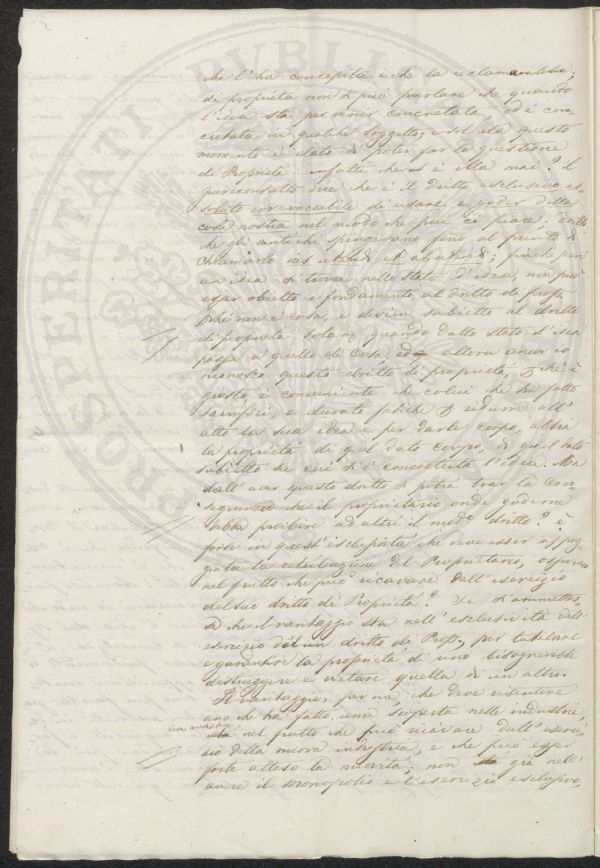 che l'ha concepita e che la reclamerebbe;
di proprietà non si può parlare che quando
l'idea sta per venir concretata, od è con-
cretata in qualche soggetto; e sol da questo
momento è dato di poter far la questione
di Proprietà: infatti che si è ella mai? il
giureconsulto dice che è il dritto esclusivo as-
soluto irrevocabile di usare e goder della
cosa nostra nel modo che più ci piace; dritto
che gli antichi spingevano fino al punto di
chiamarlo jus utendi et abutendi; finché però
un'idea si trova nello stato d'idea, non può
esser obietto e fondamento al dritto di prop.
perché non è cosa, e divien subietto al dritto
di proprietà solo quando dallo stato d'idea
passa a quello di cosa; ed allora ancor io
riconosco questo dritto di proprietà, che è
giusto, è conveniente che colui che ha fatto
sacrifizi e durate fatiche p ridurre all'
atto la sua idea e per darle corpo, abbia
la proprietà di quel dato corpo, di quel dato
subietto in cui si è concretata l'idea. Ma
dall'aver questo dritto si potrà trar la con-
seguenza che il proprietario onde goderne
debba proibire ad altri il med.o dritto? è
forse in quest'esclusività che deve esser appog-
giata la retribuzione del Proprietario, oppure
nel frutto che può ricavare dall'esercizio
del suo dritto di Proprietà? Se si ammettes-
se che il vantaggio sta nell'esclusività dell'
esercizio di un dritto di Prop., per tutelare
e garantire la proprietà di uno bisognerebbe
distruggere e vietare quella di un altro.
Il vantaggio, per me, che deve risentire
uno che ha fatto una scoperta nelle industrie,
sta nel frutto che può ricavare dall'eserci-
zio della nuova industria, e che può esser
forte atteso la novità; non già nell'
avere il monopolio e l'esercizio esclusivo,